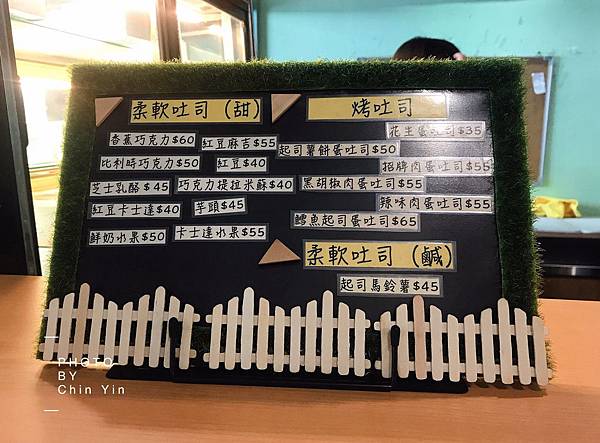 柔軟吐司（甜）
香蕉巧克力$60
紅豆麻吉$55
比利時巧克力$50
紅豆$40
芝士乳酪$45
巧克力提拉米蘇$40
紅豆卡士達$40
芋頭$45
鮮奶水果$50
卡士達水果$55
烤吐司
花生蛋吐司$35
起司薯餅蛋吐司$50
招牌肉蛋吐司$55
黑胡椒肉蛋吐司$55
辣味肉蛋吐司$55
鱈魚起司蛋吐司$65
柔軟吐司（鹹）
起司馬鈴薯$45
PHOTO
BY
Chin Yin